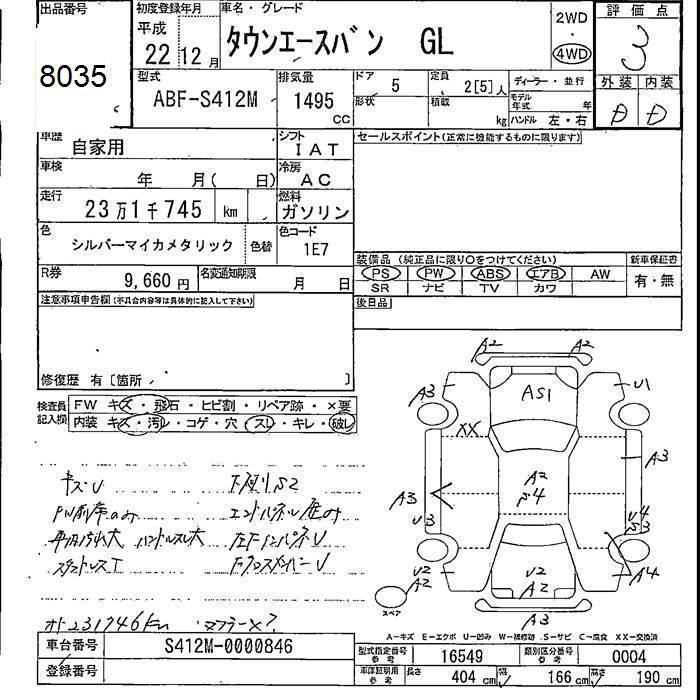 出品番号
8035
初度登録年月
平成
22年 12月
車名・グレード
タウンエースバン GL
2WD
・
4WD
評価点
3
外装 内装
D D
型式
ABF-S412M
排気量
1495
cc
ドア
5
定員
2[5]人
形状
積載
kg
ディーラー・並行
モデル年式 年
ハンドル 左・右
車歴
自家用
シフト
IAT
車検
年 月( 日)
冷房
AC
走行
23万1千745 km
燃料
ガソリン
色
シルバーマイカメタリック
色替
色コード
1E7
R券
9,660円
名変通知期限
月 日
セールスポイント(正常に機能するものに限ります)
装備品 (純正品に限り○をつけてください)
PS PW ABS エアB AW
SR ナビ TV カワ
新車保証書
有・無
後日品
注意事項申告欄(不具合内容等は具体的に記入して下さい)
修復歴 有〔箇所 〕
検査員記入欄
FW キズ・飛石・ヒビ割・リペア跡・×要
内装 キズ・汚レ・コゲ・穴・スレ・キレ・破レ
キズU
下廻りS2
ハンドルスレ大
スタッドレスT
オド231746km マフラー×?
A2
A2
A3
AS1
U1
XX
A3
A3
U3
A2
U4
S3
A4
U2
A2
U2
A2
A3
スペア
A-キズ E-エクボ U-凹み W-補修跡 S-サビ C-腐食 XX-交換済
車台番号
S412M-0000846
登録番号
型式指定番号
参考
16549
類別区分番号
参考
0004
車庫証明用
参考
長さ
404 cm
幅
166 cm
高さ
190 cm